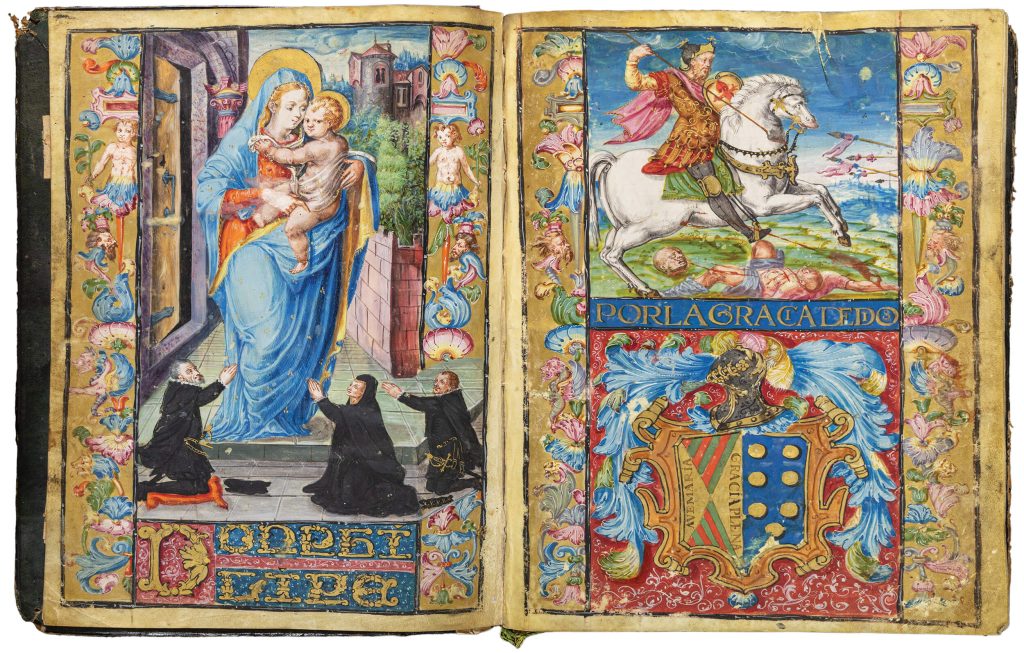 DONPHE
LIPE
PORLAGRACIADEDIO
AVEMARIA
GRACIAPLE